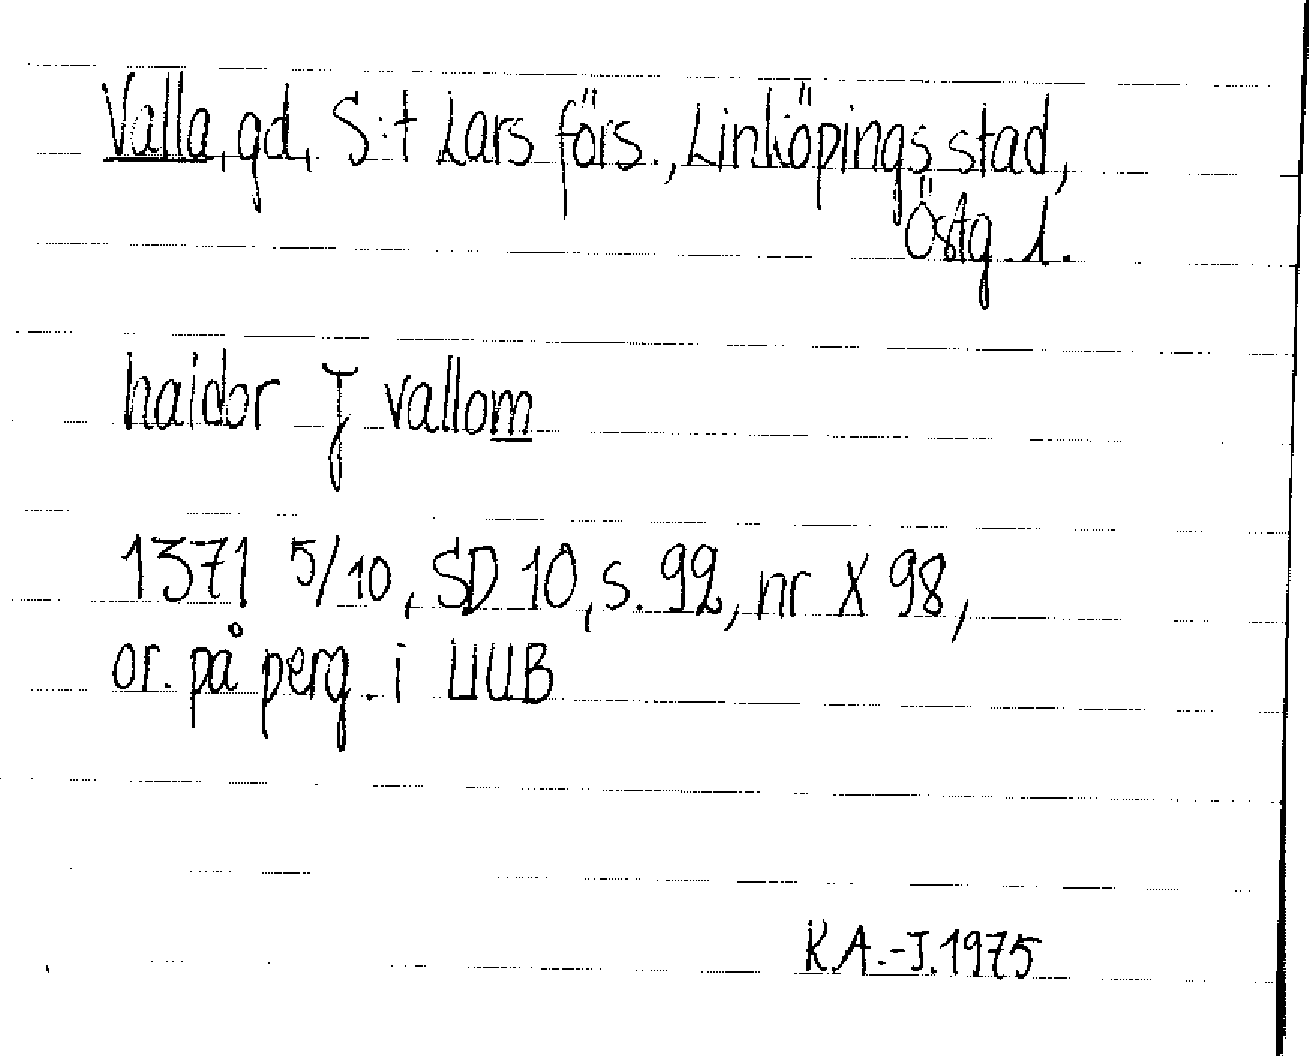 Valla, gd, S:t Lars förs., Linköpings stad,
Östg. l.
haidor j vallom
1371 5/10, SD 10, s. 92, nr X 98,
or. på perg. i UUB
K A.-J. 1975